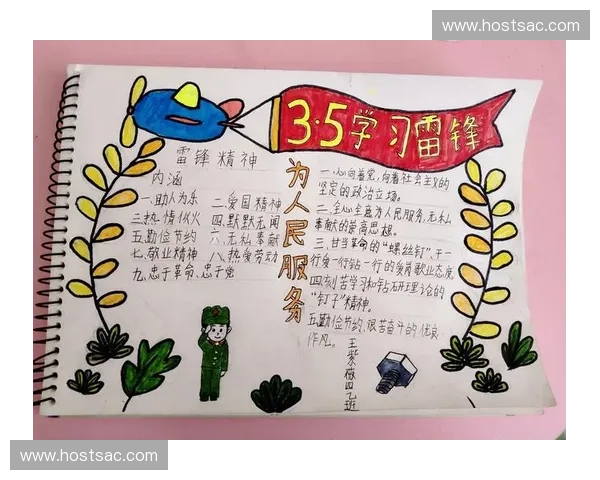 www.hostsac.com
3·5学习雷锋
雷锋精神
内涵
一.助人为乐 二.爱国精神
三.热情似火 四.默默无闻
五.勤俭节约 六.无私奉献
七.敬业精神 八.热爱劳动
九.忠于革命、忠于党
为人民服务
一.心向着党,向着社会主义的
坚定的政治立场。
二.全心全意为人民服务,无私
奉献的崇高思想。
三.甘当革命的“螺丝钉”、干一
行爱一行钻一行的爱岗敬业态度
四.刻苦学习和钻研理论的
“钉子”精神。
五.勤俭节约,艰苦奋斗的优良
作风。
王紫薇四乙班
www.hostsac.com
www.hostsac.com